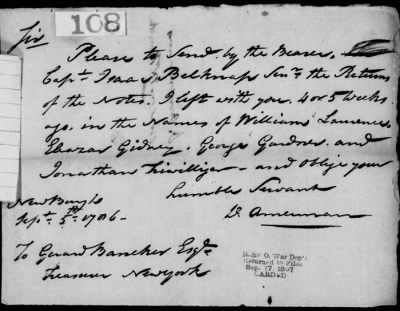 108
Sir
Please to Send by the Bearer
Capt Isaac Belknap Senr the Returns
of the Notes. I left with you 4 or 5 Weeks
ago. in the Names of William Lawrence
Eleazar Gidney. George Gardner. and
Jonathan Terwilliger - and oblige your
humble Servant
D.
New Burgh
Sept. 5th 1786.
To Gerard Bancker Esqr
Treasurer New York
R. & P. O. War Dep't
Returned to Files
Sep. 17, 1897
CARDED